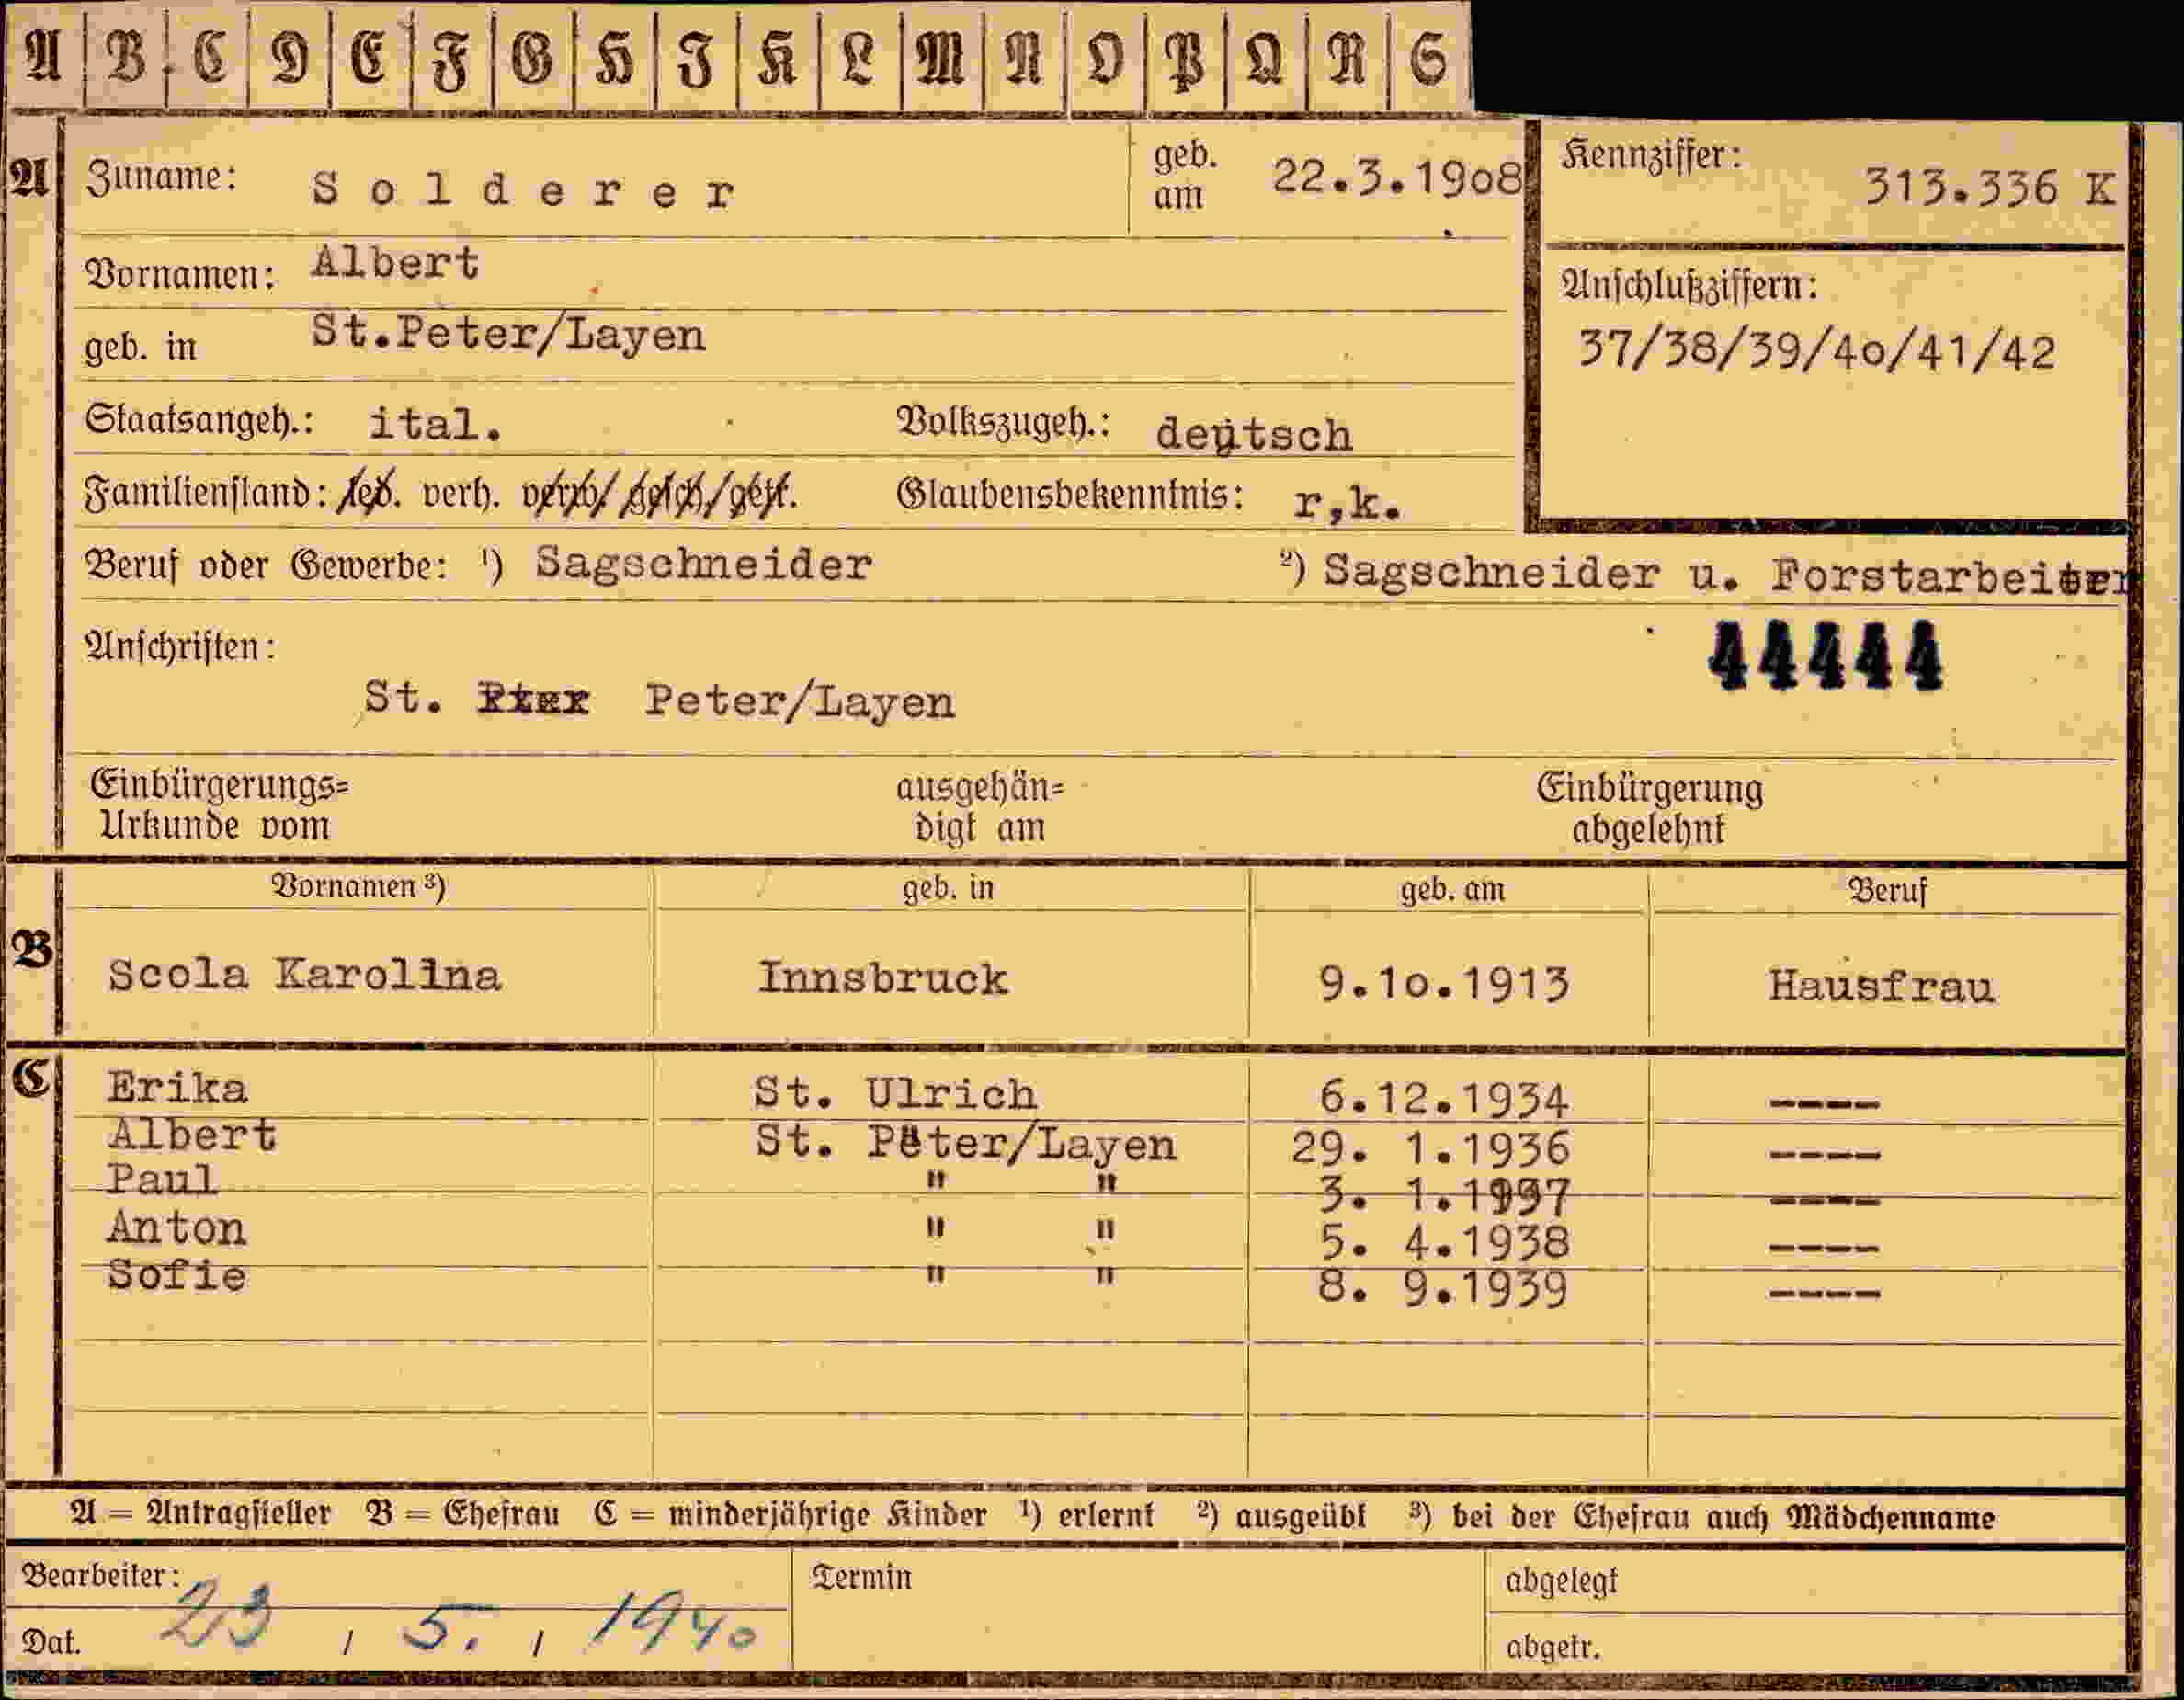 A B C D E F G H I K L M N O P Q R S
A Zuname: Solderer geb. am 22.3.1908 Kennziffer: 313.336 K
Vornamen: Albert
Anschlußziffern:
geb. in St.Peter/Layen
37/38/39/40/41/42
Staatsangeh.: ital. Volkszugeh.: deutsch
Familienstand: led. verh. verw/ gesch/gest. Glaubensbekenntnis: r,k.
Beruf oder Gewerbe: ¹) Sagschneider ²) Sagschneider u. Forstarbeiter
Anschriften:
44444
St. Peter/Layen
Einbürgerungs= ausgehän= Einbürgerung
Urkunde vom digt am abgelehnt
Vornamen ³) geb. in geb. am Beruf
B Scola Karolina Innsbruck 9.10.1913 Hausfrau
C Erika St. Ulrich 6.12.1934 ----
Albert St. Peter/Layen 29. 1.1936 ----
Paul " " 3. 1.1937 ----
Anton " " 5. 4.1938 ----
Sofie " " 8. 9.1939 ----
A = Antragsteller B = Ehefrau C = minderjährige Kinder ¹) erlernt ²) ausgeübt ³) bei der Ehefrau auch Mädchenname
Bearbeiter: Termin abgelegt
Dat. 23 / 5. / 1940 abgetr.